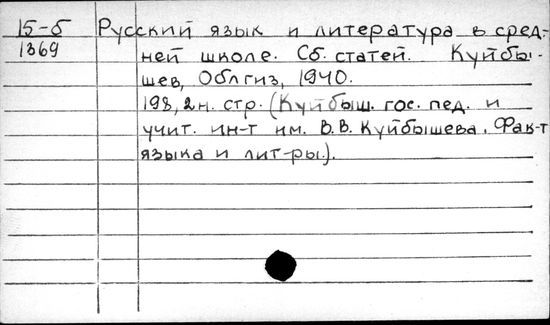 15-б Русский язык и литература в сред-
1369 ней школе. Сб. статей. Куйбы-
шев, Облгиз, 1940.
198, 2 н. стр. (Куйбыш. гос. пед. и
учит. ин-т им. В.В. Куйбышева. Фак-т
языка и лит-ры).